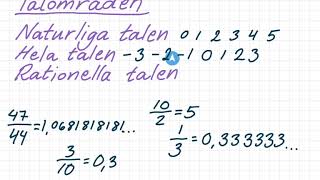 Talområden
Naturliga talen 0 1 2 3 4 5
Hela talen -3 -2 -1 0 1 2 3
Rationella talen
47/44 = 1,0681818181...
10/2 = 5
3/10 = 0,3
1/3 = 0,333333...